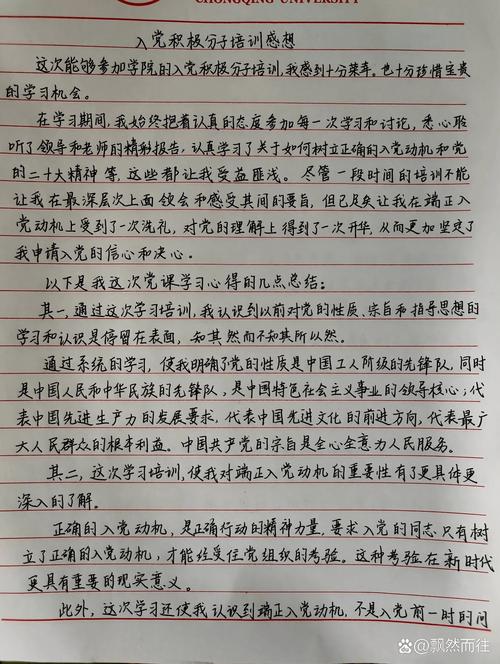 CHONGQING UNIVERSITY
入党积极分子培训感想
这次能够参加学院的入党积极分子培训,我感到十分荣幸。也十分珍惜宝贵
的学习机会。
在学习期间,我始终把着认真的态度参加每一次学习和讨论,悉心聆
听了领导和老师的精彩报告,认真学习了关于如何树立正确的入党动机和党
的二十大精神等,这些都让我受益匪浅。尽管一段时间的培训不能
让我在最深层次上面领会和感受其间的要旨,但已足矣让我在端正入
党动机上受到了一次洗礼,对党的理解上得到了一次升华,从而更加坚定了
我申请入党的信心和决心。
以下是我这次党课学习心得的几点总结:
其一,通过这次学习培训,我认识到以前对党的性质、宗旨和指导思想的
学习和认识是停留在表面,知其然而不知其所以然。
通过系统的学习,使我明确了党的性质是中国工人阶级的先锋队,同时
是中国人民和中华民族的先锋队,是中国特色社会主义事业的领导核心;代
表中国先进生产力的发展要求,代表中国先进文化的前进方向,代表最广
大人民群众的根本利益。中国共产党的宗旨是全心全意为人民服务。
其二,这次学习培训,使我对端正入党动机的重要性有了更具体更
深入的了解。
正确的入党动机,是正确行动的精神力量,要求入党的同志只有树
立了正确的入党动机,才能经受住党组织的考验。这种考验在新时代
更具有重要的现实意义。
此外,这次学习还使我认识到端正入党动机,不是入党前一时的问
@飘然而往